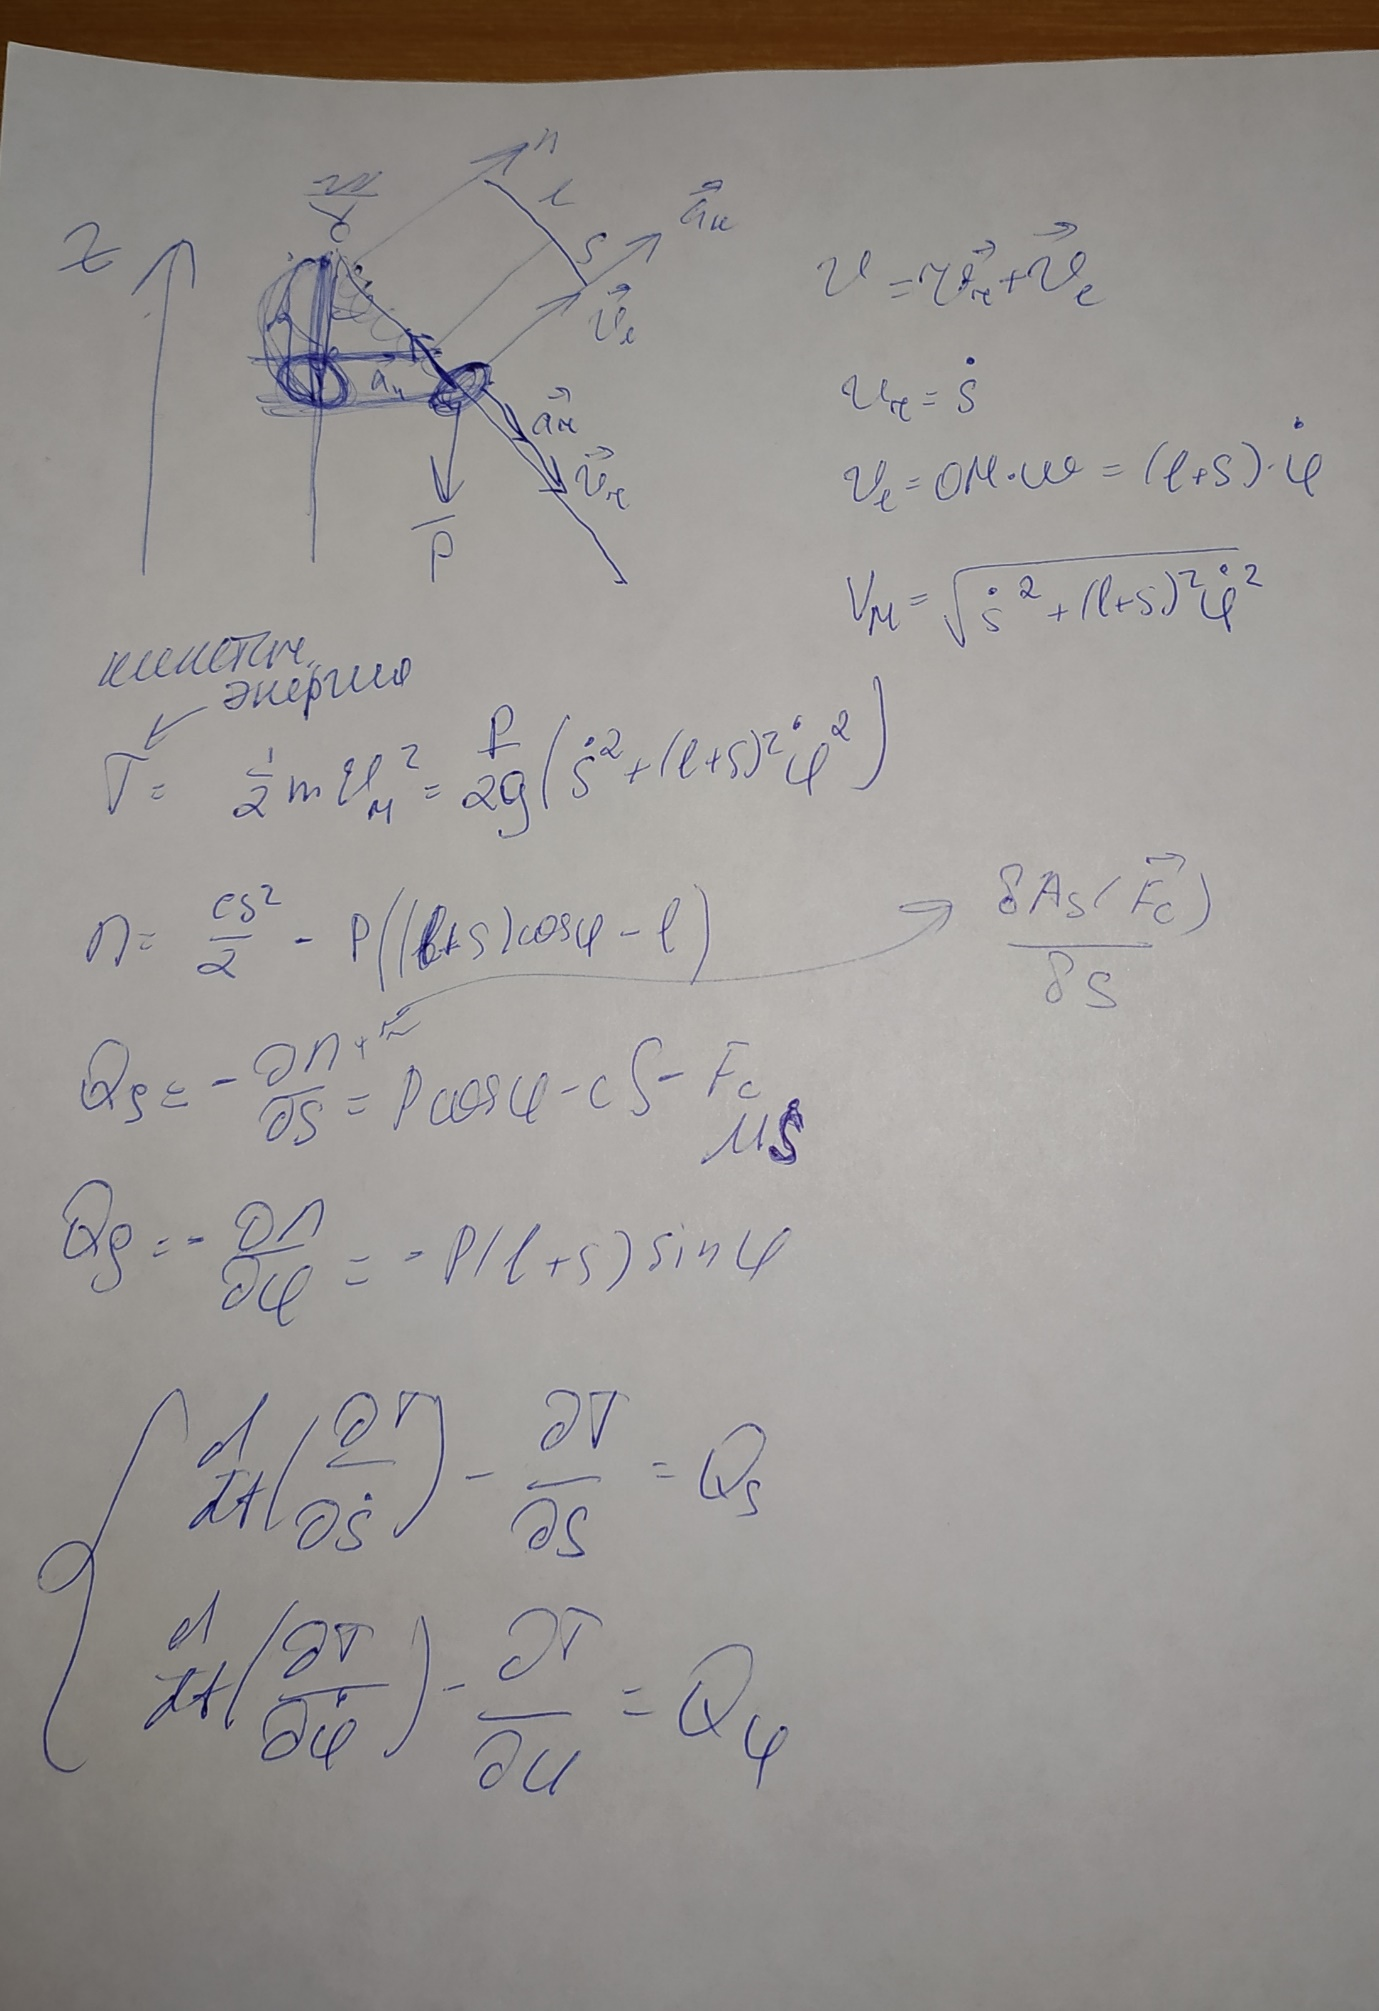 z
n
l
s
O
a⃗к
v⃗e
a⃗n
a⃗r
v⃗r
P̄
v = v⃗r + v⃗e
vr = ṡ
ve = OM·ω = (l+s)·φ̇
VM = √(ṡ² + (l+s)²φ̇²)
кинетич.
энергия
T = 1/2 m vM² = P/2g (ṡ² + (l+s)²φ̇²)
П = cs²/2 - P((l+s)cosφ - l)
δAs(F⃗c)/δs
Qs = - ∂П/∂s + = P cosφ - cs - Fc
μṡ
Qφ = - ∂П/∂φ = - P(l+s) sinφ
d/dt (∂T/∂ṡ) - ∂T/∂s = Qs
d/dt (∂T/∂φ̇) - ∂T/∂φ = Qφ